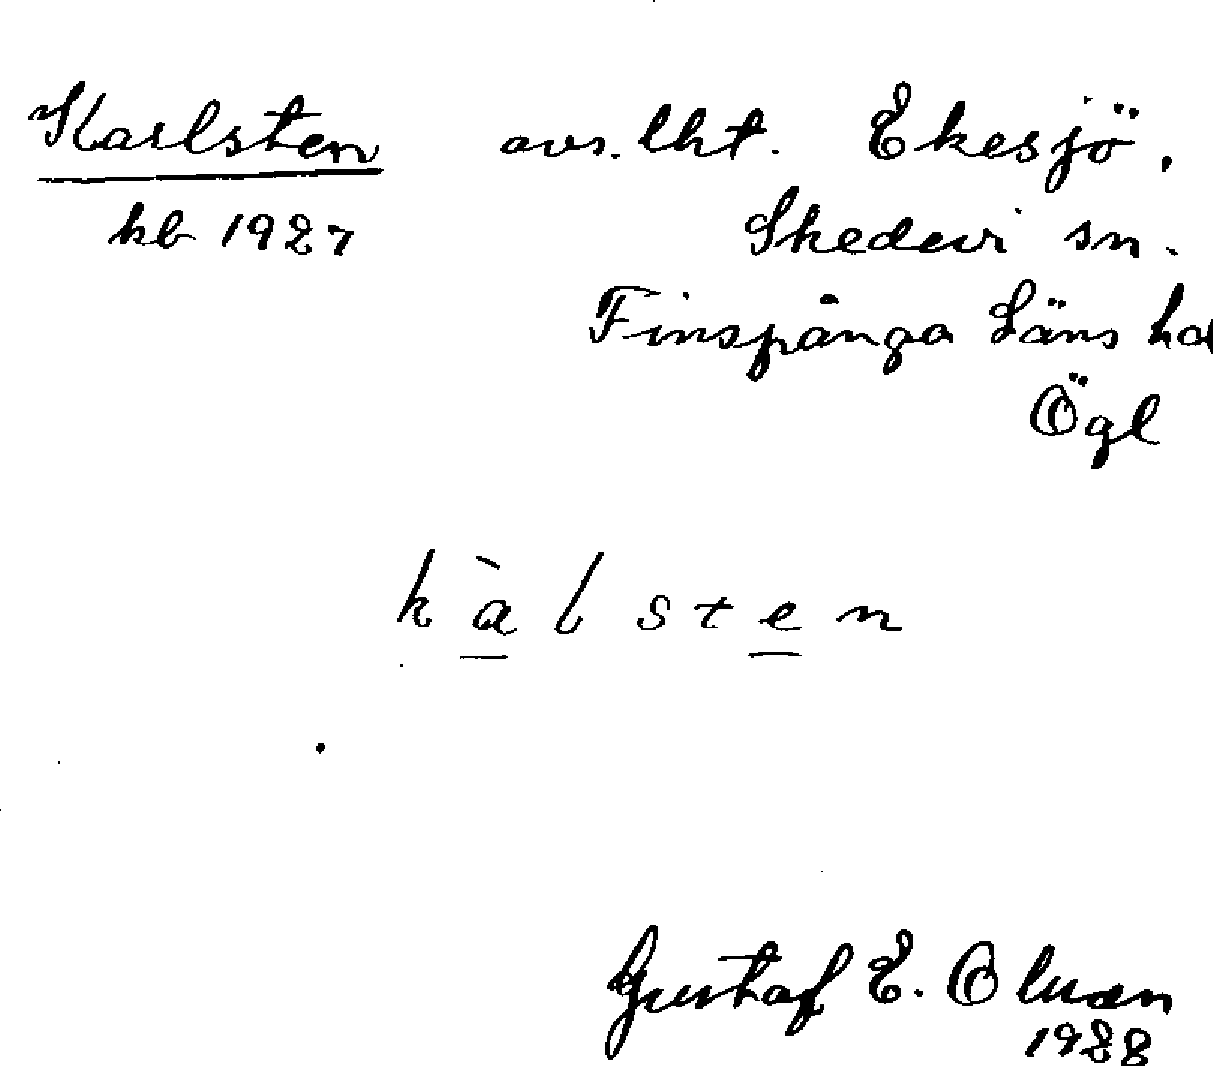 Karlsten avs. lht. Ekesjö.
kb 1927 Skedevi sn.
Finspånga Läns hd
Ögl
kàlsten
Gustaf E. Olsson
1928